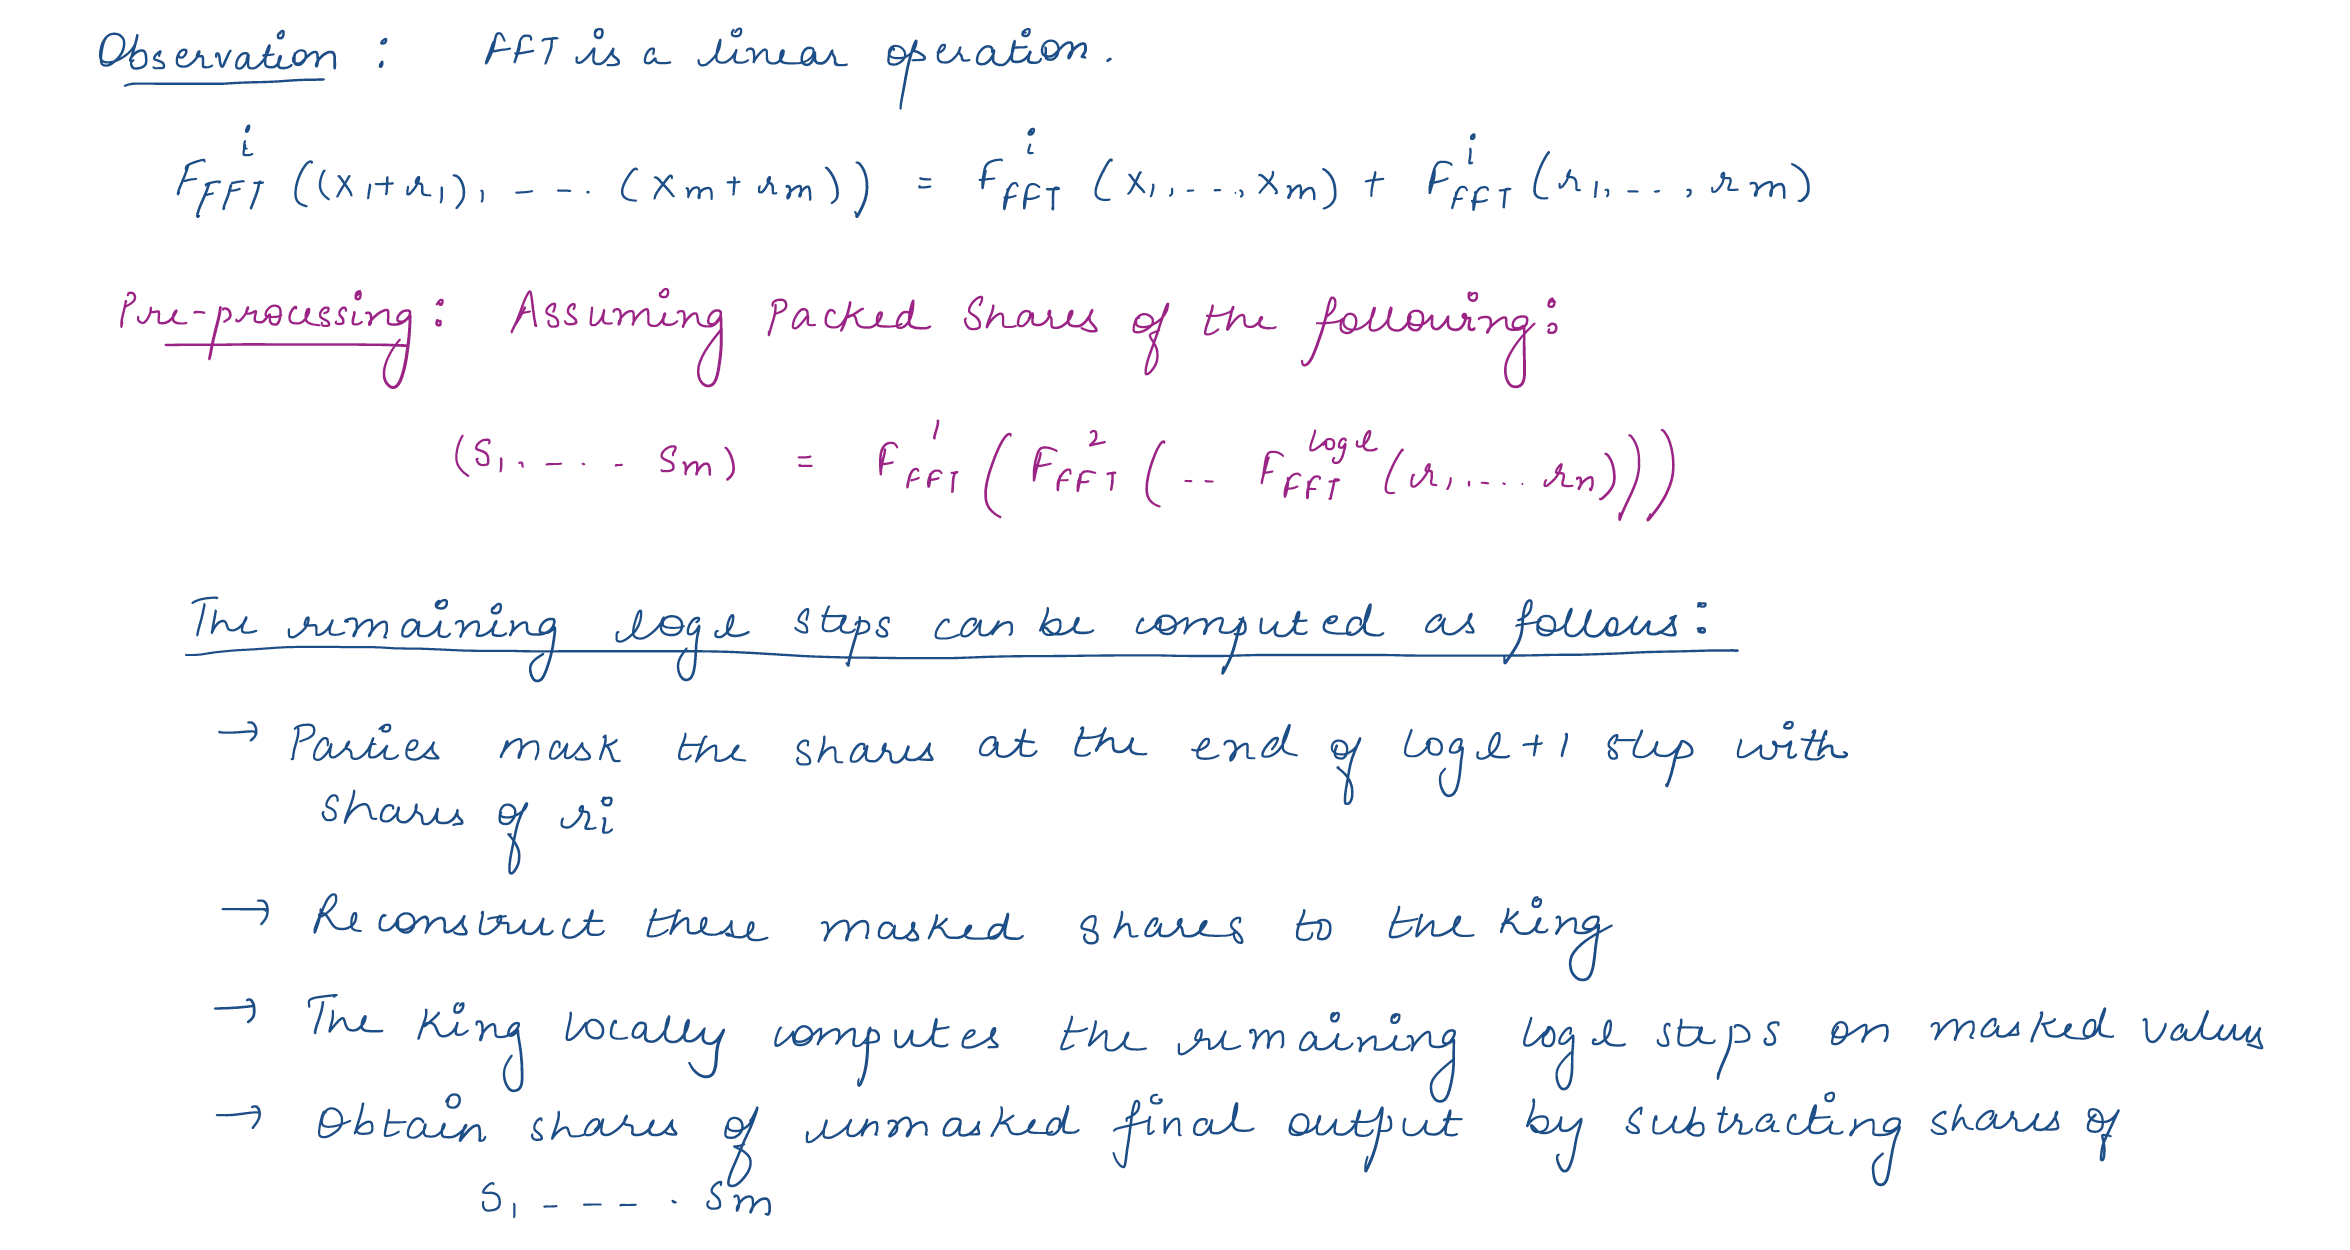 Observation : FFT is a linear operation.
F^i_FFT ((x_1+r_1), --. (x_m+r_m)) = F^i_FFT (x_1,.--., x_m) + F^i_FFT (r_1,.--, r_m)
Pre-processing: Assuming Packed Shares of the following:
(s_1,.--.- s_m) = F^1_FFT (F^2_FFT (-- F^{log l}_FFT (r_1,.... r_n)))
The remaining log l steps can be computed as follows:
→ Parties mask the shares at the end of log l+1 step with
shares of ri
→ Reconstruct these masked shares to the King
→ The King locally computes the remaining log l steps on masked values
→ Obtain shares of unmasked final output by subtracting shares of
s_1 ----. s_m